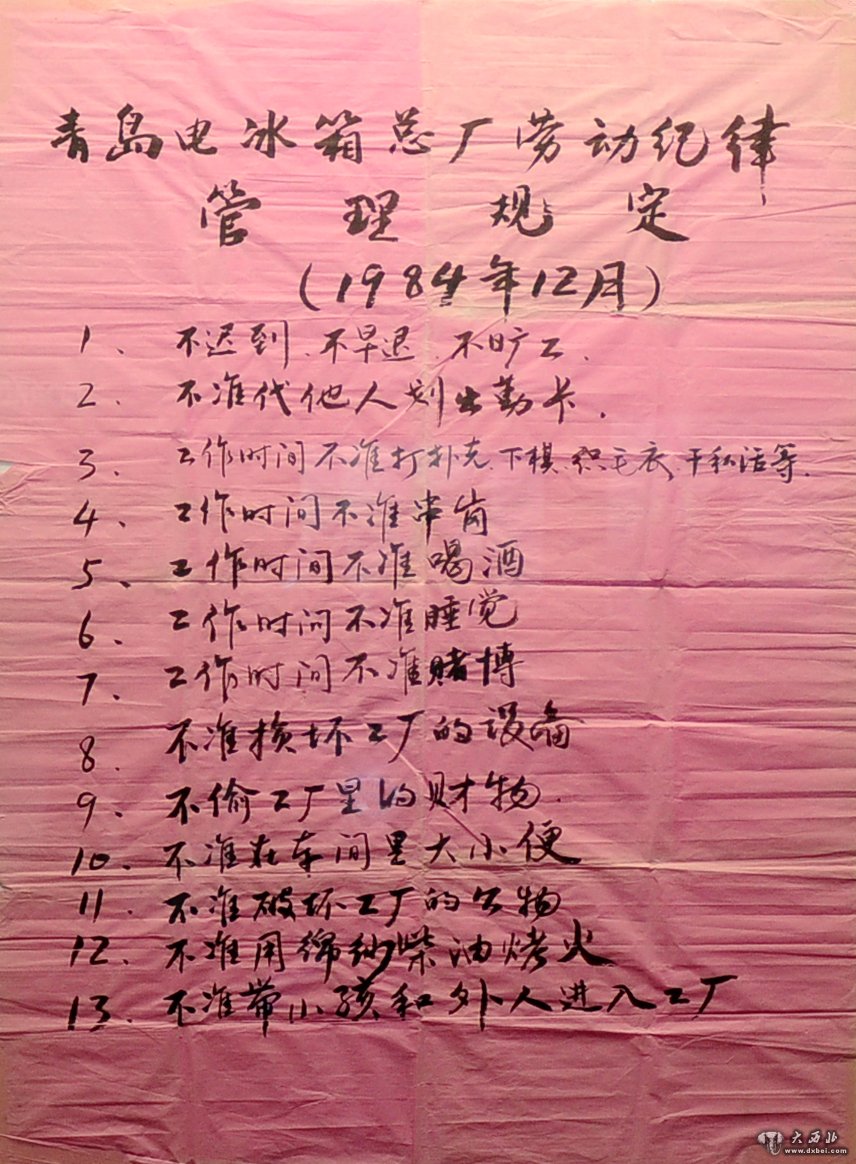 青岛电冰箱总厂劳动纪律
管理规定
(1984年12月)
1、不迟到、不早退、不旷工、
2、不准代他人划出勤卡、
3、工作时间不准打扑克、下棋、织毛衣、干私活等、
4、工作时间不准串岗
5、工作时间不准喝酒
6、工作时间不准睡觉
7、工作时间不准赌博
8、不准损坏工厂的设备
9、不偷工厂里的财物.
10、不准在车间里大小便
11、不准破坏工厂的公物
12、不准用绵纱柴油烤火
13、不准带小孩和外人进入工厂
大西北
www.dxbei.com